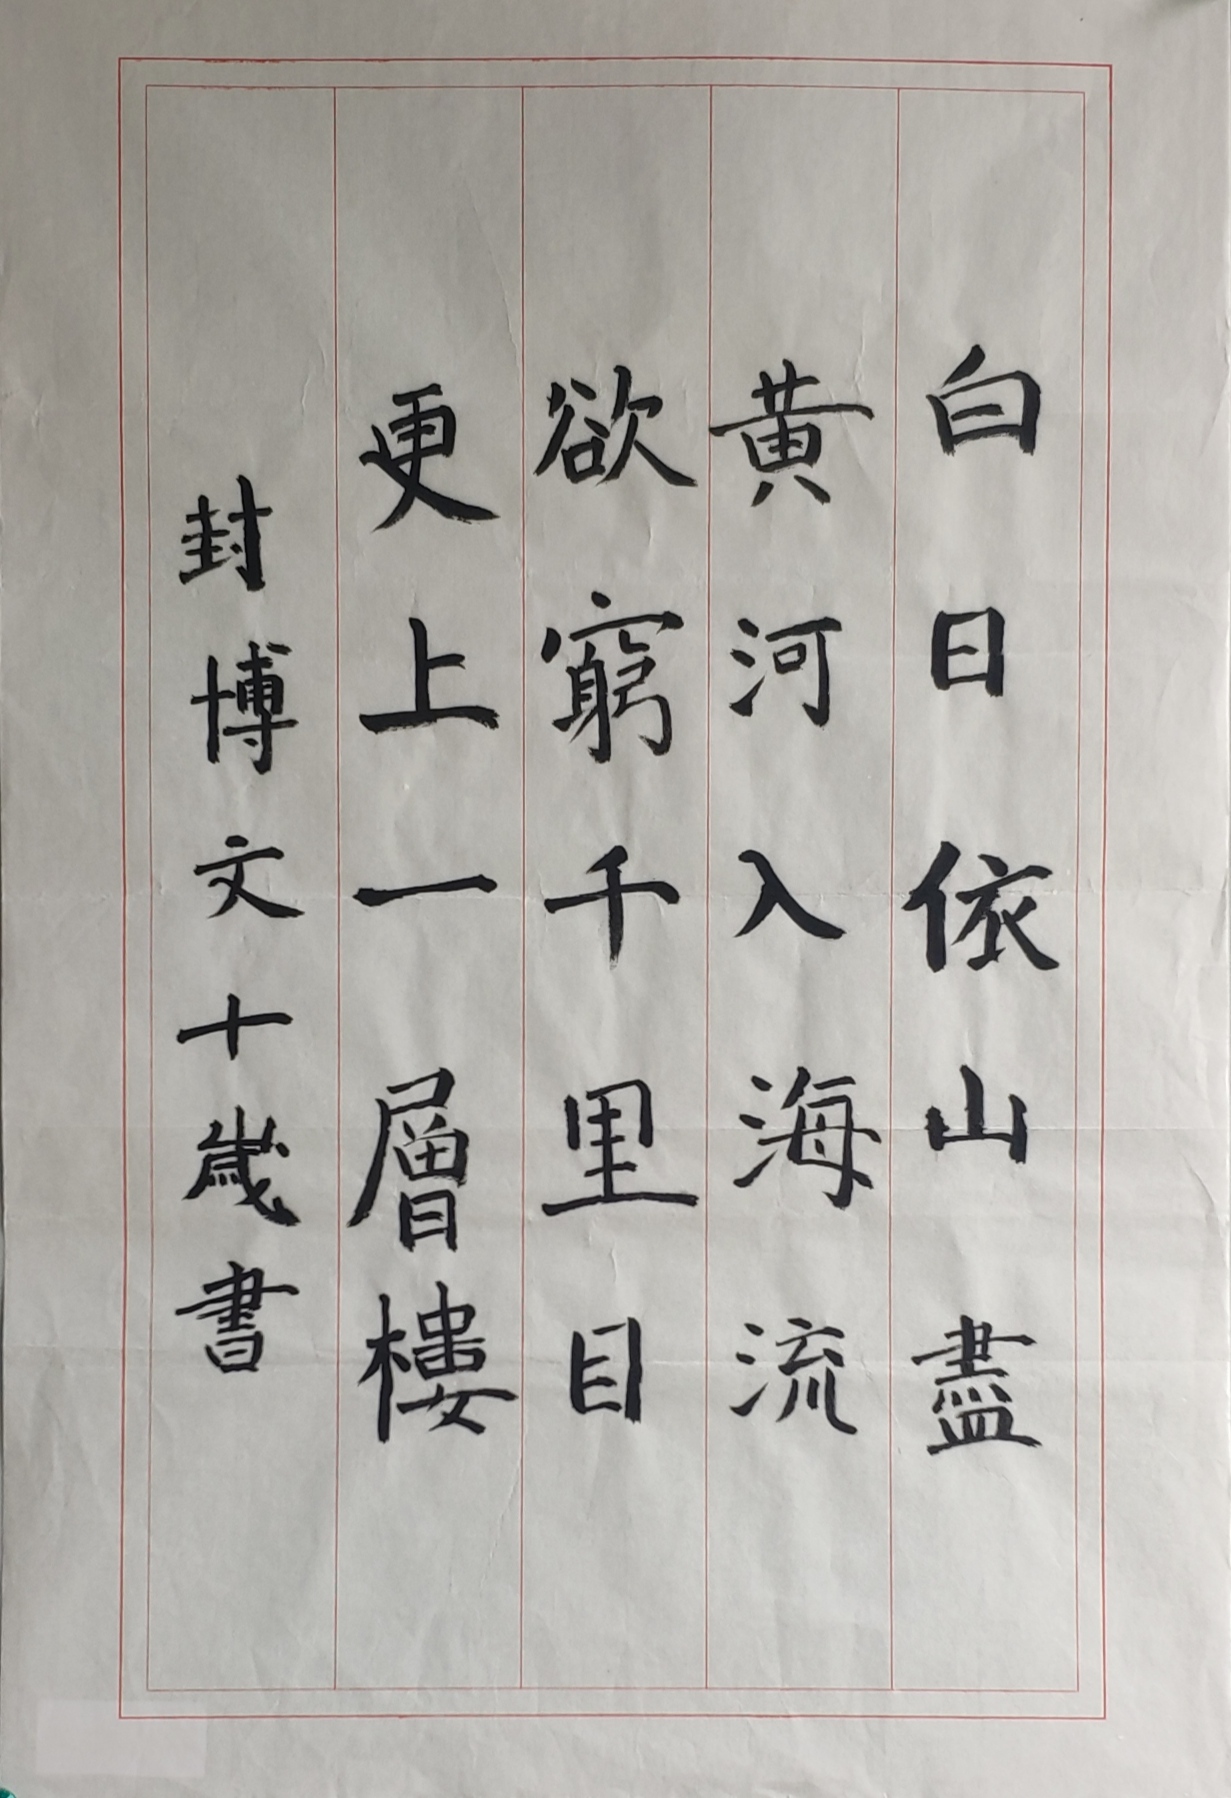 白日依山盡
黄河入海流
欲窮千里目
更上一層樓
封博文十歲書